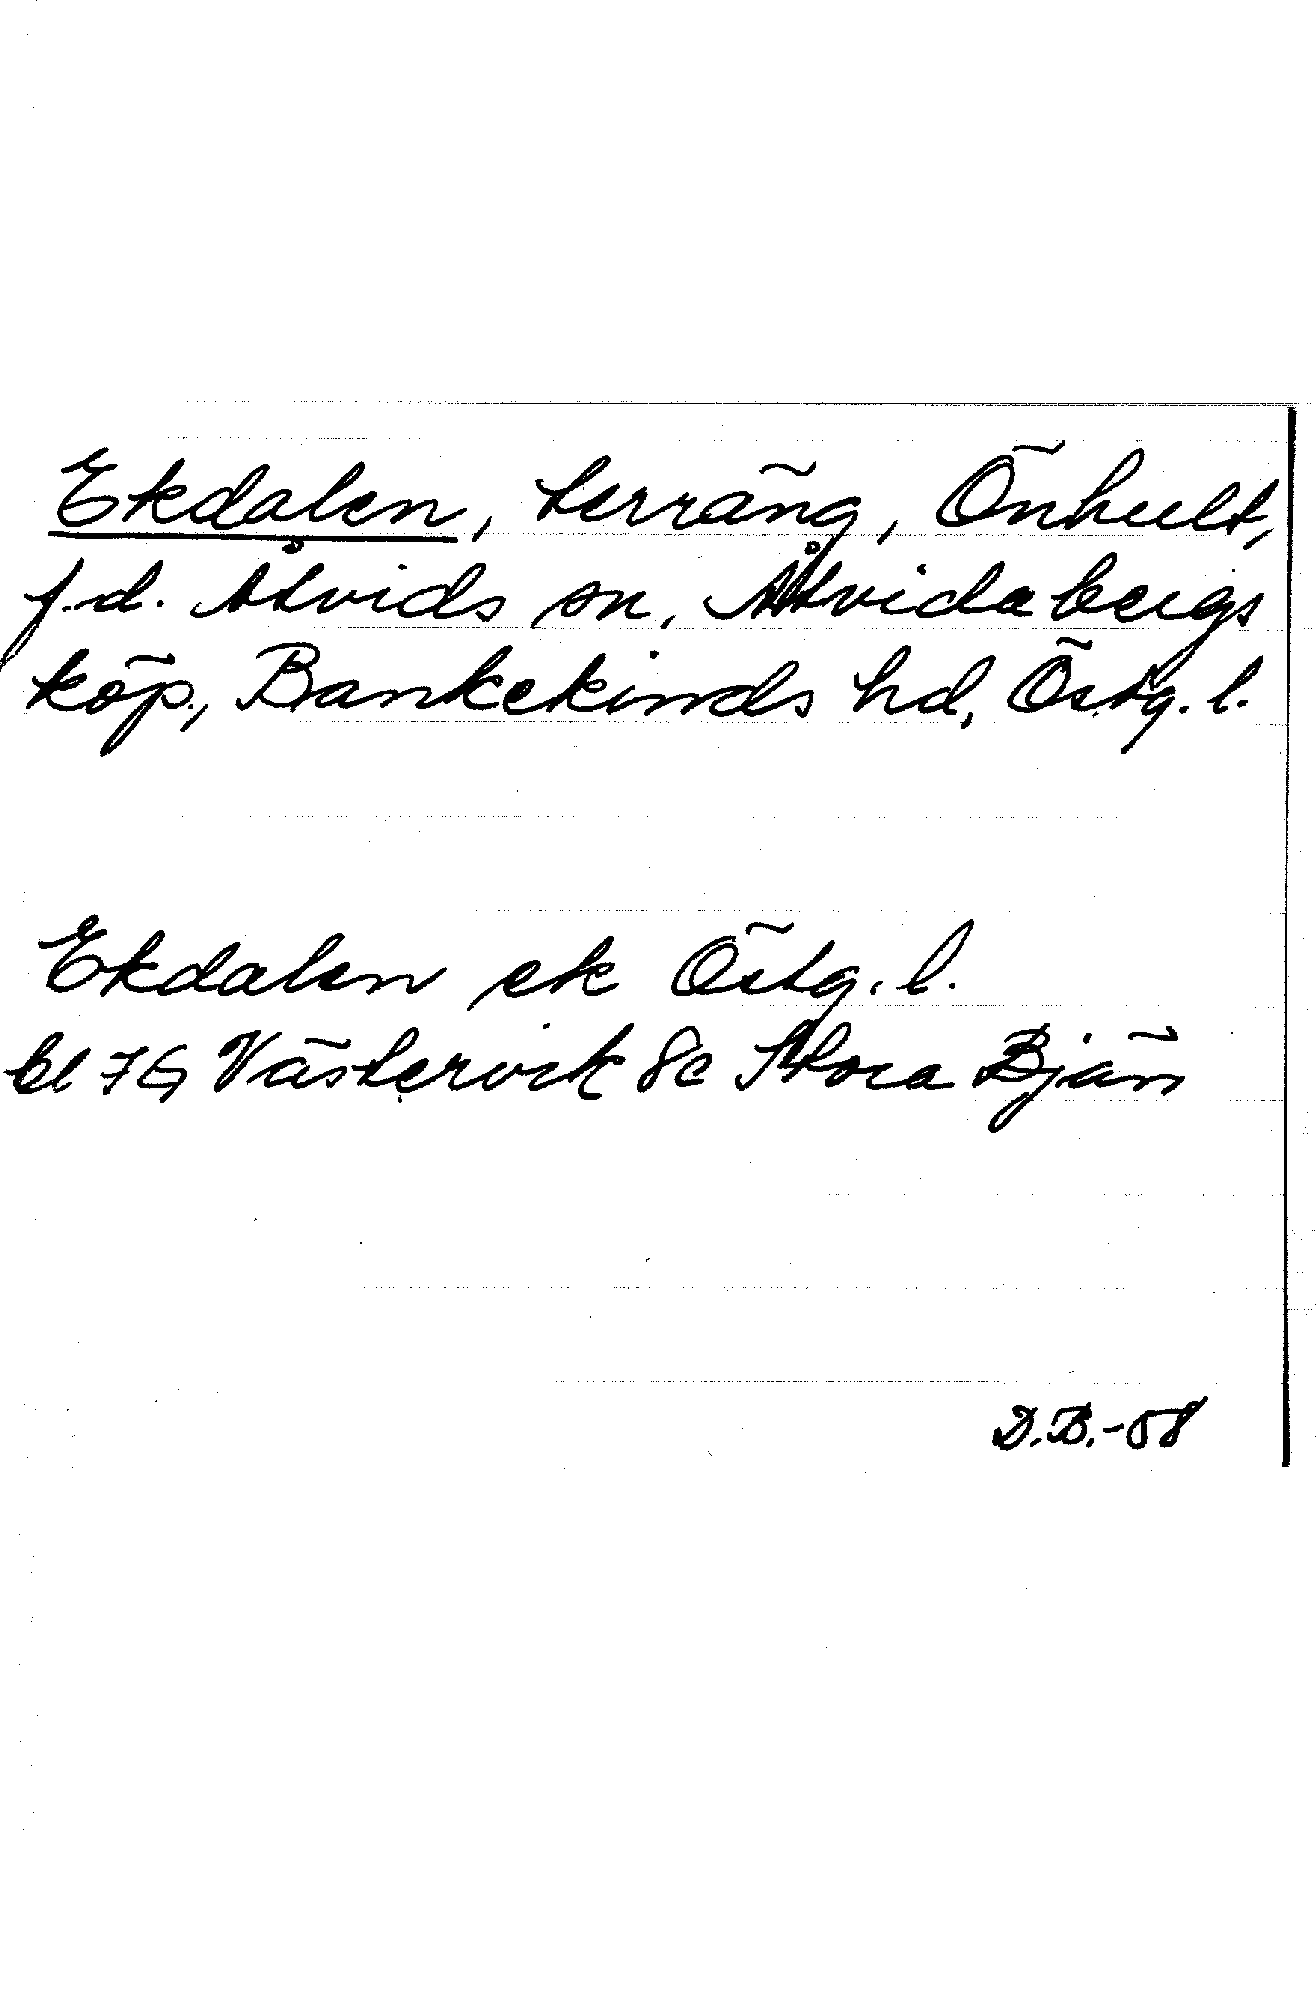 Ekdalen, terräng, Önhult,
f.d. Åtvids sn, Åtvidabergs
köp., Bankekinds hd, Östg. l.
Ekdalen ek Östg. l.
bl 7G Västervik 8c Stora Bjän
D.B.-58